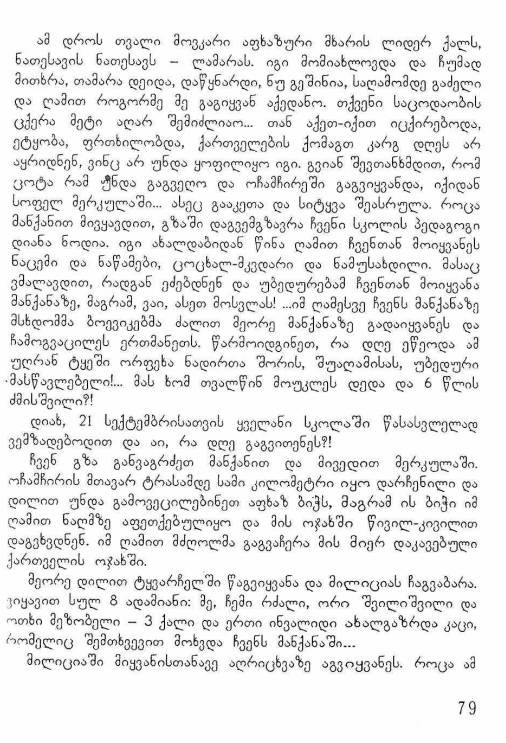 ამ დროს თვალი მოვკარი აფხაზური მხარის ლიდერ ქალს,
ნათესავის ნათესავს – ლამარას. იგი მომიახლოვდა და ჩუმად
მითხრა, თამარა დეიდა, დაწყნარდი, ნუ გეშინია, საღამომდე გაძელი
და ღამით როგორმე მე გაგიყვან აქედანო. თქვენი საცოდაობის
ცქერა მეტი აღარ შემიძლიაო... თან აქეთ-იქით იცქირებოდა,
ეტყობა, ფრთხილობდა, ქართველების ქომაგთ კარგ დღეს არ
აყრიდნენ, ვინც არ უნდა ყოფილიყო იგი. გვიან შევთანხმდით, რომ
ცოტა რამ უნდა გაგვეღო და ოჩამჩირეში გაგვიყვანდა, იქიდან
სოფელ მერკულაში... ასეც გააკეთა და სიტყვა შეასრულა. როცა
მანქანით მივყავდით, გზაში დაგვემგზავრა ჩვენი სკოლის პედაგოგი
დიანა ნოდია. იგი ახალდაბიდან წინა ღამით ჩვენთან მოიყვანეს
ნაცემი და ნაწამები, ცოცხალ-მკვდარი და ნამუსახდილი. მასაც
ვმალავდით, რადგან ეძებდნენ და უბედურებამ ჩვენთან მოიყვანა
მანქანაზე, მაგრამ, ვაი, ასეთ მოსვლას! ...იმ ღამესვე ჩვენს მანქანაზე
მსხდომმა ბოევიკებმა ძალით მეორე მანქანაზე გადაიყვანეს და
ჩამოგვაცილეს ერთმანეთს. წარმოიდგინეთ, რა დღე ეწეოდა ამ
უღრან ტყეში ორფეხა ნადირთა შორის, შუაღამისას, უბედური
მასწავლებელი!... მას ხომ თვალწინ მოუკლეს დედა და 6 წლის
ძმისშვილი?!
დიახ, 21 სექტემბრისათვის ყველანი სკოლაში წასასვლელად
ვემზადებოდით და აი, რა დღე გაგვითენეს?!
ჩვენ გზა განვაგრძეთ მანქანით და მივედით მერკულაში.
ოჩამჩირის მთავარ ტრასამდე სამი კილომეტრი იყო დარჩენილი და
დილით უნდა გამოვეცილებინეთ აფხაზ ბიჭს, მაგრამ ის ბიჭი იმ
ღამით ნაღმზე აფეთქებულიყო და მის ოჯახში წივილ-კივილით
დაგვხვდნენ. იმ ღამით მძღოლმა გაგვაჩერა მის მიერ დაკავებული
ქართველის ოჯახში.
მეორე დილით ტყვარჩელში წაგვიყვანა და მილიციას ჩაგვაბარა.
ვიყავით სულ 8 ადამიანი: მე, ჩემი რძალი, ორი შვილიშვილი და
ოთხი მეზობელი – 3 ქალი და ერთი ინვალიდი ახალგაზრდა კაცი,
რომელიც შემთხვევით მოხვდა ჩვენს მანქანაში...
მილიციაში მიყვანისთანავე აღრიცხვაზე აგვიყვანეს. როცა ამ
79